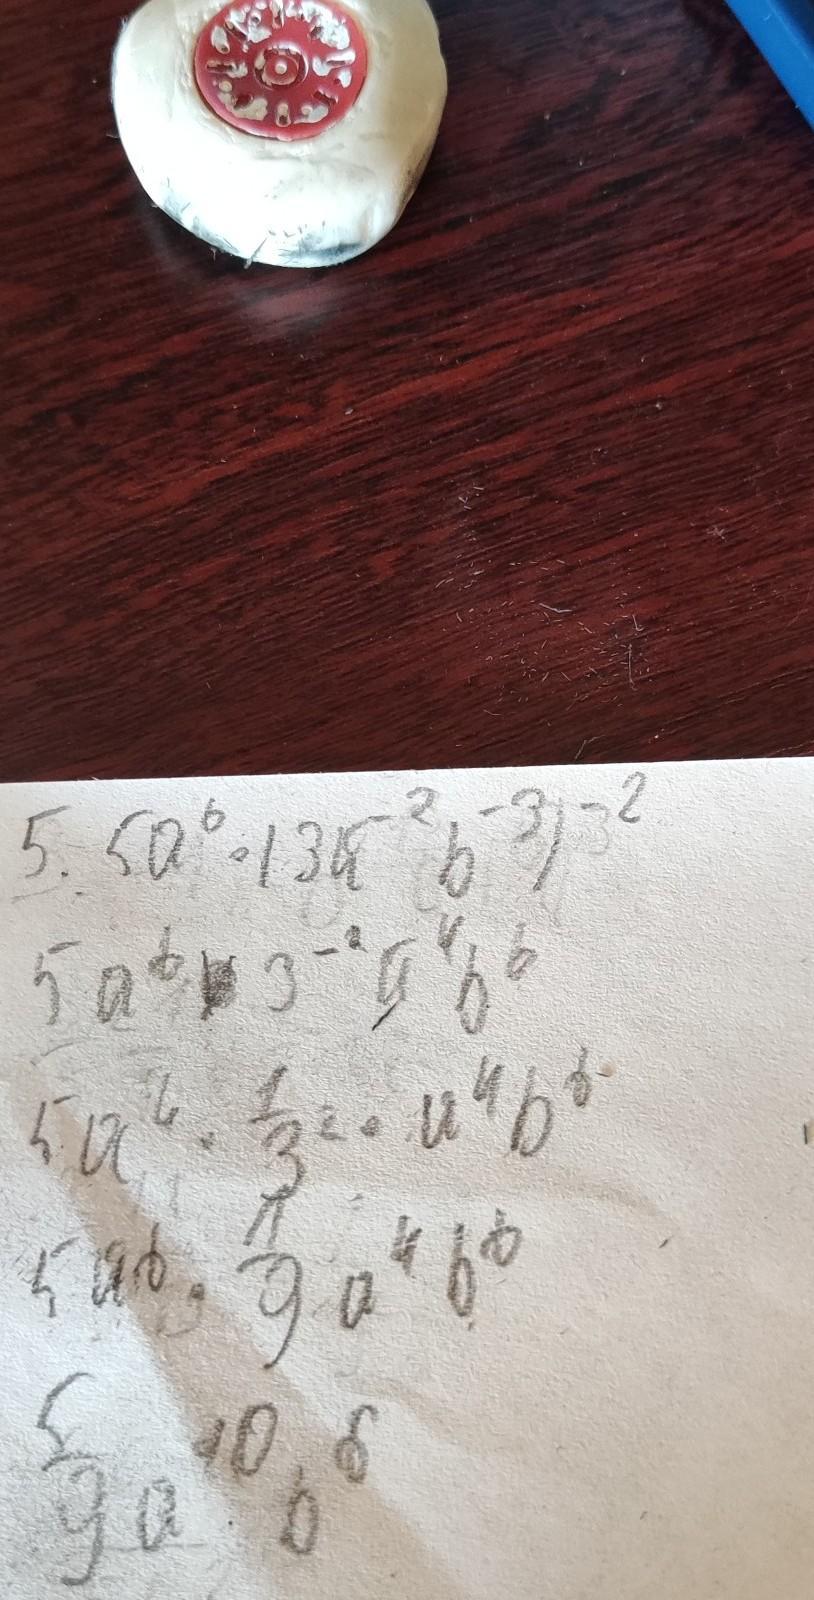 5. 5a⁶·(3a⁻²b⁻³)⁻²
5a⁶ 3⁻²a⁴b⁶
5a⁶·1/3²·a⁴b⁶
5a⁶·1/9a⁴b⁶
5/9a¹⁰b⁶